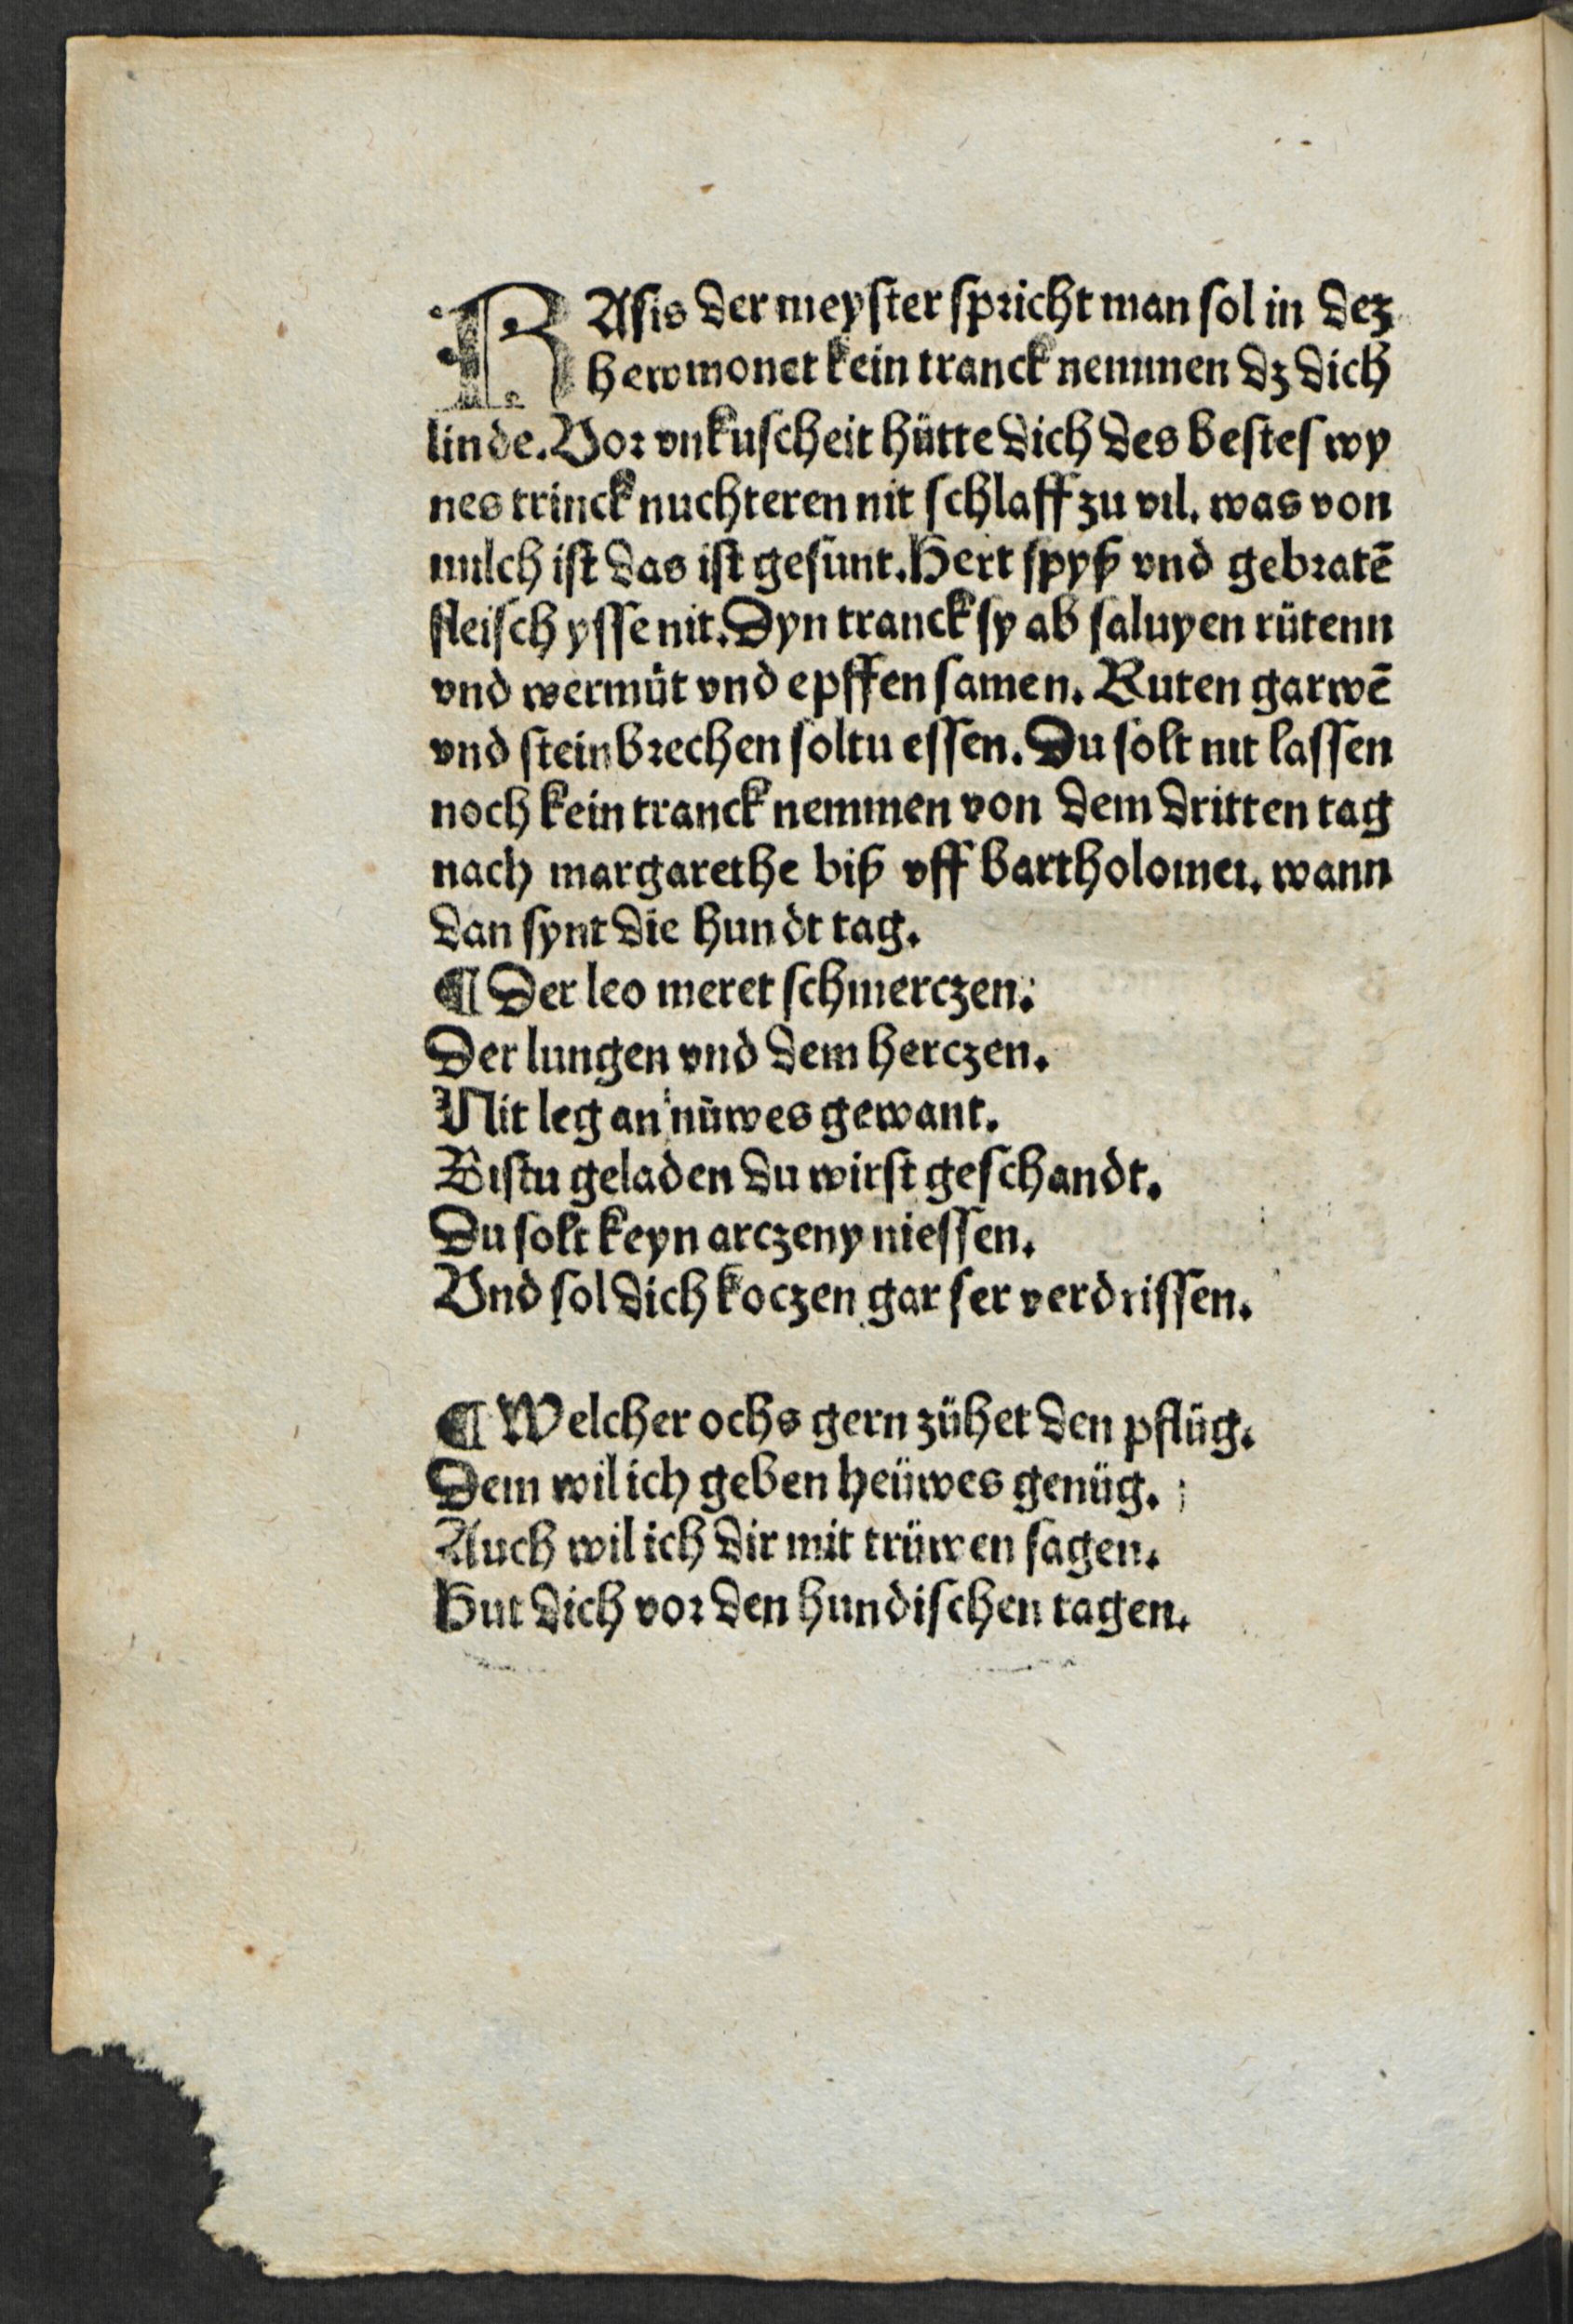 RAsis der meyster spricht man sol in dez
hewmonet kein tranck nemmen dz dich
linde. Vor vnkuscheit hütte dich des bestes wy
nes trinck nuchteren nit schlaff zu vil. was von
milch ist das ist gesunt. Hert spyß vnd gebratē
fleisch ysse nit. Dyn tranck sy ab saluyen rütenn
vnd wermüt vnd epffen samen. Ruten garwē
vnd steinbrechen soltu essen. Du solt nit lassen
noch kein tranck nemmen von dem dritten tag
nach margarethe biß vff bartholomei. wann
dan synt die hundt tag.
¶ Der leo meret schmerczen.
Der lungen vnd dem herczen.
Nit leg an nüwes gewant.
Bistu geladen du wirst geschandt.
Du solt keyn arczeny niessen.
Vnd sol dich koczen gar ser verdrissen.
¶ Welcher ochs gern zühet den pflüg.
Dem wil ich geben heüwes genüg.
Auch wil ich dir mit trüwen sagen.
Hut dich vor den hundischen tagen.